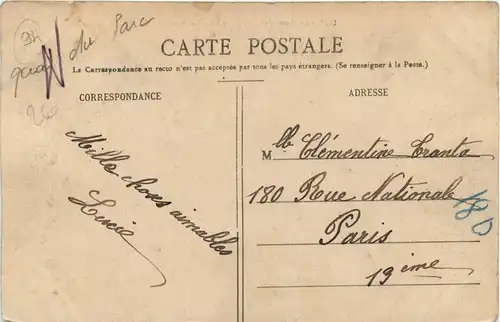 du Parc
CARTE POSTALE
La Correspondance au recto n'est pas acceptée par tous les pays étrangers. (Se renseigner à la Poste.)
CORRESPONDANCE
ADRESSE
Mille choses aimables
Lucie
Mlle Clémentine Tranta
180 Rue Nationale
Paris
19ème
180